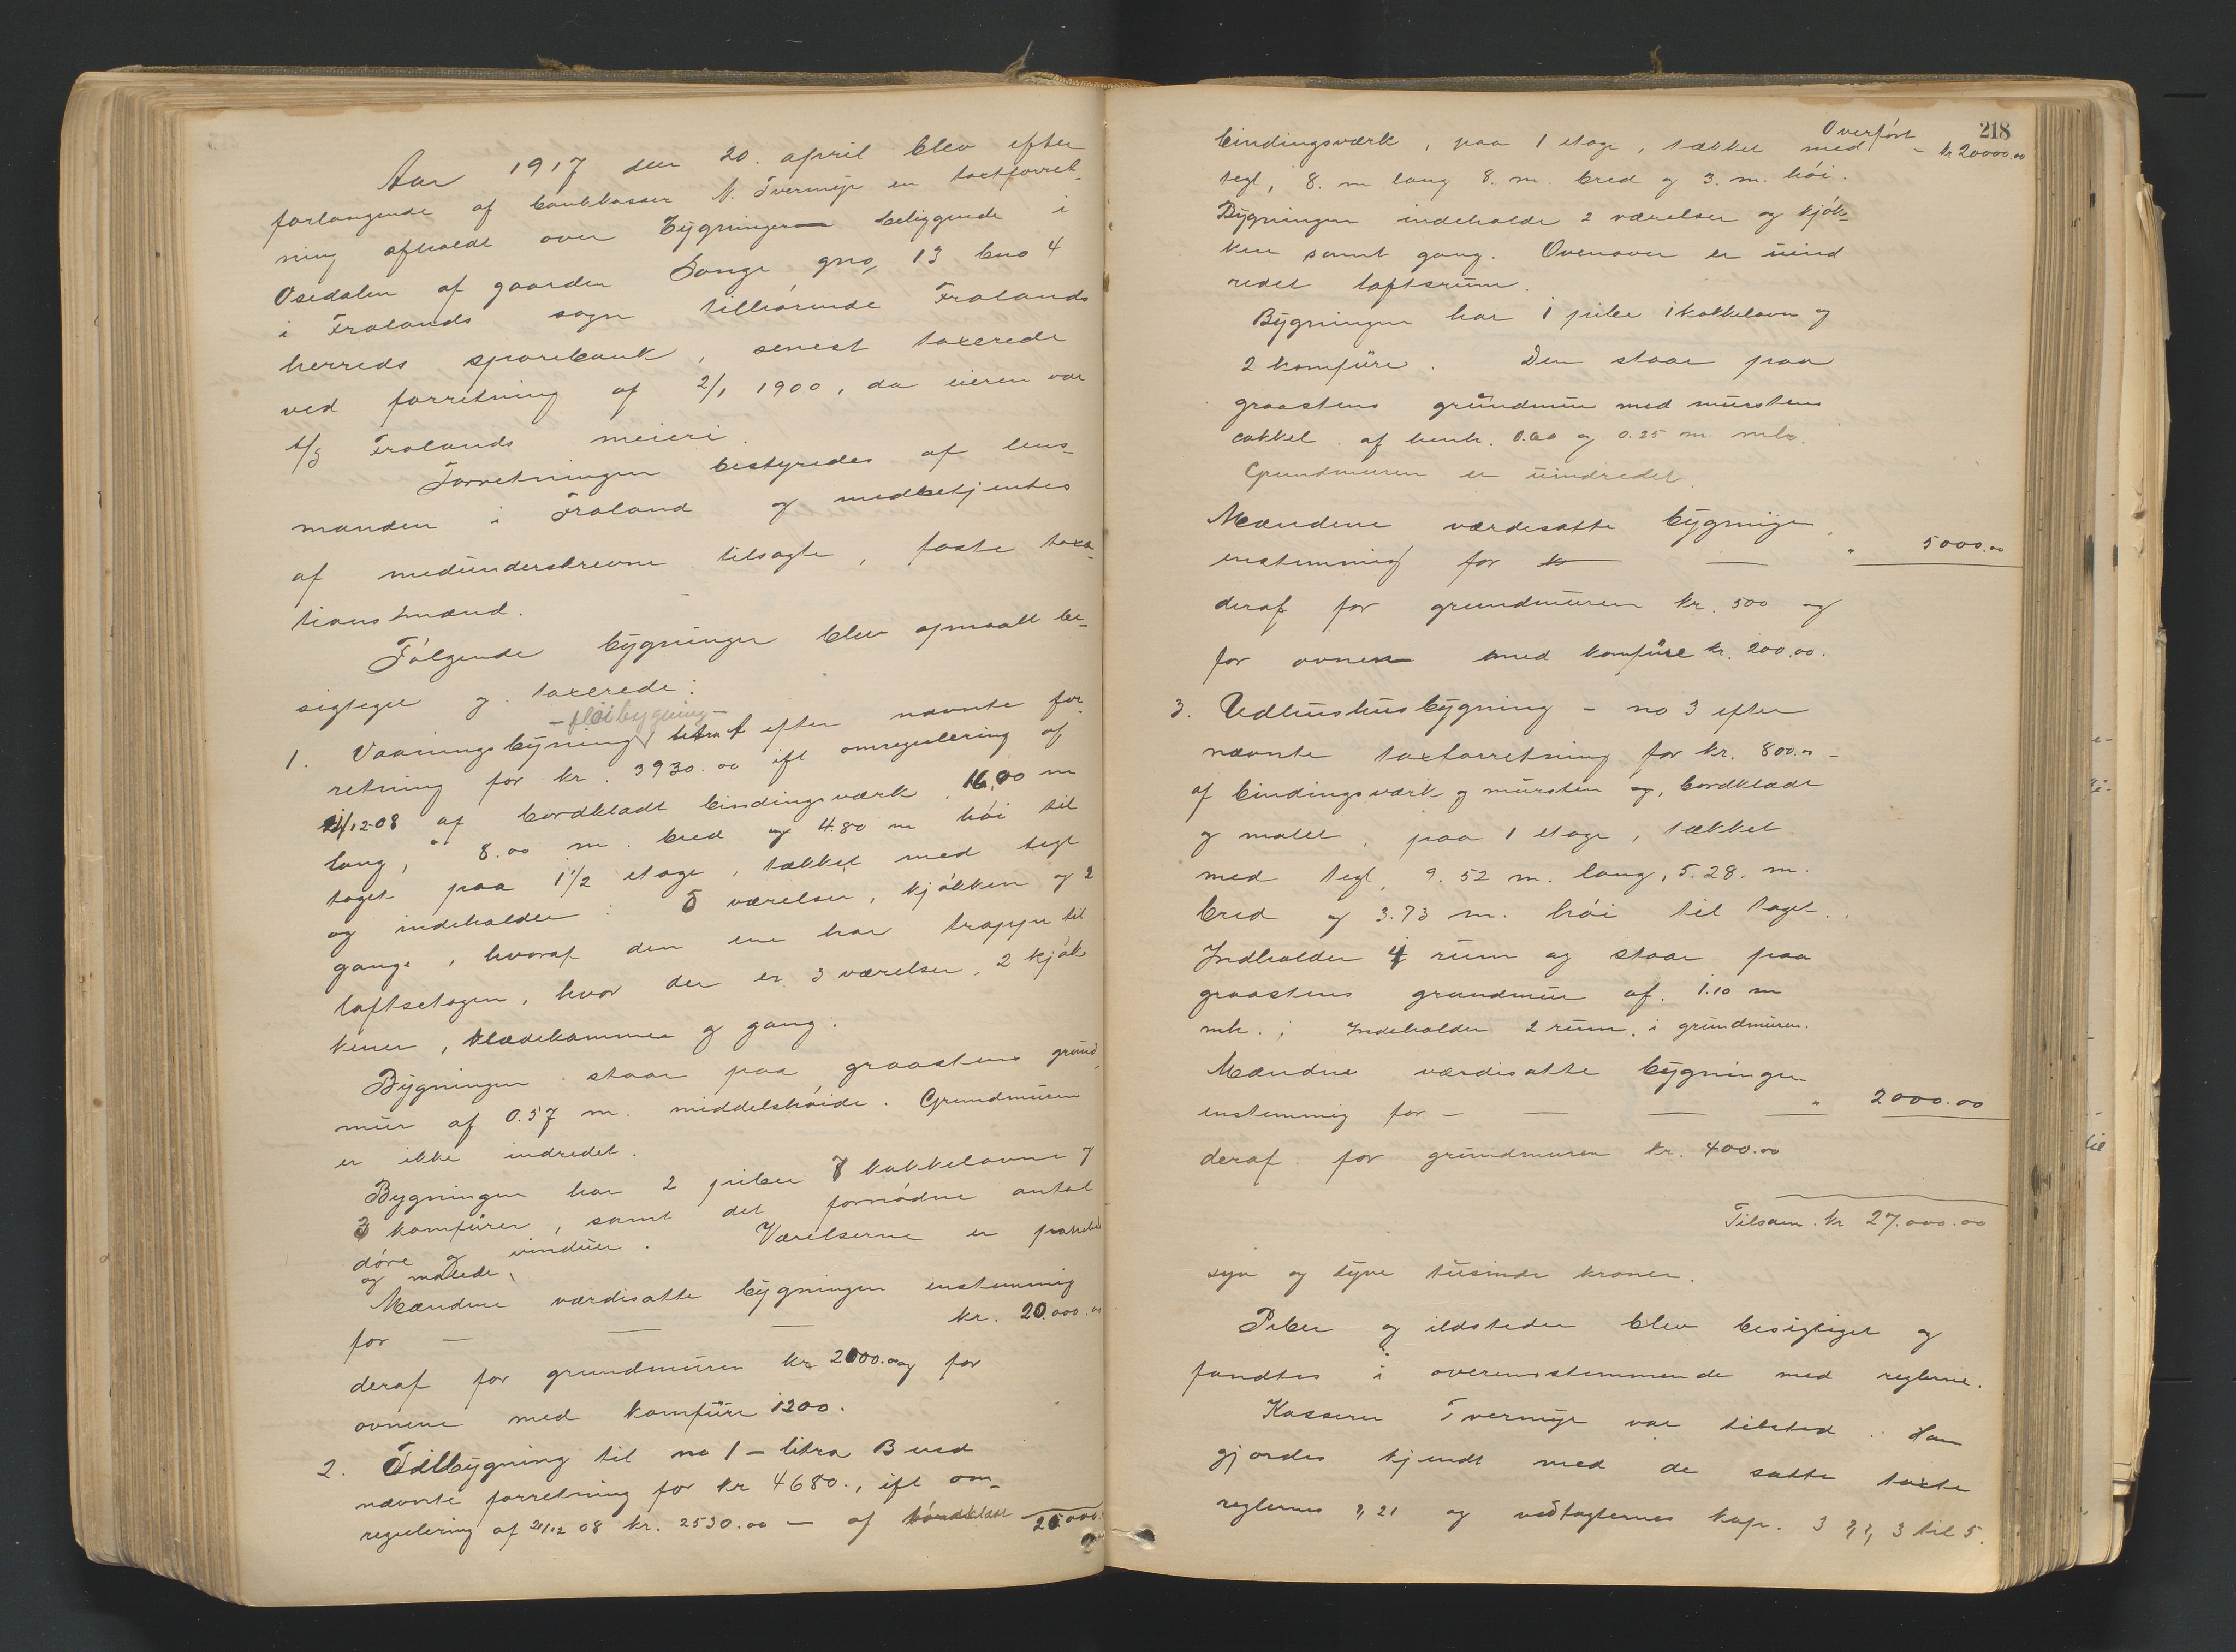 Aar 1917 den 20. april blev efter
forlangende af bankkasser N. Tvermyr en taxtforret-
ning afholdt over bygninger beliggende i
Osedalen af gaarden Songe gno 13 bno 4
i Frolands sogn tilhørende Frolands
herreds sparebank, senest taxerede
ved forretning af 2/1 1900, da eieren var
A/S Frolands meieri.
Forretningen bestyredes af lens-
manden i Froland og medbetjentes
af medunderskrevne tilsagte, faste taxa-
tionsmænd.
Følgende bygninger blev opmaalt be-
sigtiget og taxerede:
- fløibygning -
1. Vaaningsbyning litra A efter nævnte for-
retning for kr. 3930.00 ift omregulering af
21/12-08 af bordklædt bindingsværk, 16,00 m
lang, 8.00 m. bred og 4.80 m høi til
taget paa 1 1/2 etage, tækket med tegl
og indeholder: 5 værelser, kjøkken og 2
gange, hvoraf den ene har trappe til
loftsetagen, hvor der er 3 værelser, 2 kjøk-
kener, klædekammer og gang.
Bygningen staar paa graastens grund
mur af 0.57 m. middelshøide. Grundmuren
er ikke indredet.
Bygningen har 2 piber 7 kakkelovne og
3 komfurer, samt det fornødne antal
døre og vinduer. Værelserne er panelede
og malede.
Mændene værdisatte bygningen enstemmig
for — — — kr. 20.000.00
deraf for grundmuren kr 2000.00 og for
ovnene med komfüre 1200.
2. Tilbygning til no 1 - litra B ved
nævnte forretning for kr 4680., ift om-
regulering af 21/12 08 kr. 2530.00 — af bordklædt 20000
218
Overført
bindingsværk, paa 1 etage, tækket med - kr 20000.00
tegl, 8. m lang 8. m. bred og 3. m. høi.
Bygningen indeholde 2 værelser og kjøk-
ken samt gang. Ovenover er uind
redet loftsrum.
Bygningen har 1 pibe 1 kakkelovn og
2 komfüre. Den staar paa
graastens grundmur med murstens
sokkel af henh. 0.60 og 0.25 m mh.
Grundmuren er uindredet.
Mændene værdisatte bygnigen
enstemmig for kr — — " 5000.00
deraf for grundmuren kr. 500 og
for ovnen med komfüre kr. 200.00.
3. Udhushusbygning - no 3 efter
nævnte taxtforretning for kr. 800.00 -
af bindingsværk og mursten og, bordklædt
og malet, paa 1 etage, tækket
med tegl, 9.52 m. lang, 5.28. m.
bred og 3.73 m. høi til taget.
Indholder 4 rum og staar paa
graastens grundmur af. 1.10 m
mh.; Indeholder 2 rum i grundmuren.
Mændne værdisatte bygningen
enstemmig for - — — — " 2000.00
deraf for grundmuren kr. 400.00
Tilsam. kr 27.000.00
syv og tyve tusinde kroner.
Piber og ildsteder blev besigtiget og
fandtes i overensstemmende med reglerne.
Kasserer Tvermyr var tilsted. Han
gjordes kjendt med de satte taxte
reglernes § 21 og vedtagternes kap. 3 §§ 3 til 5.